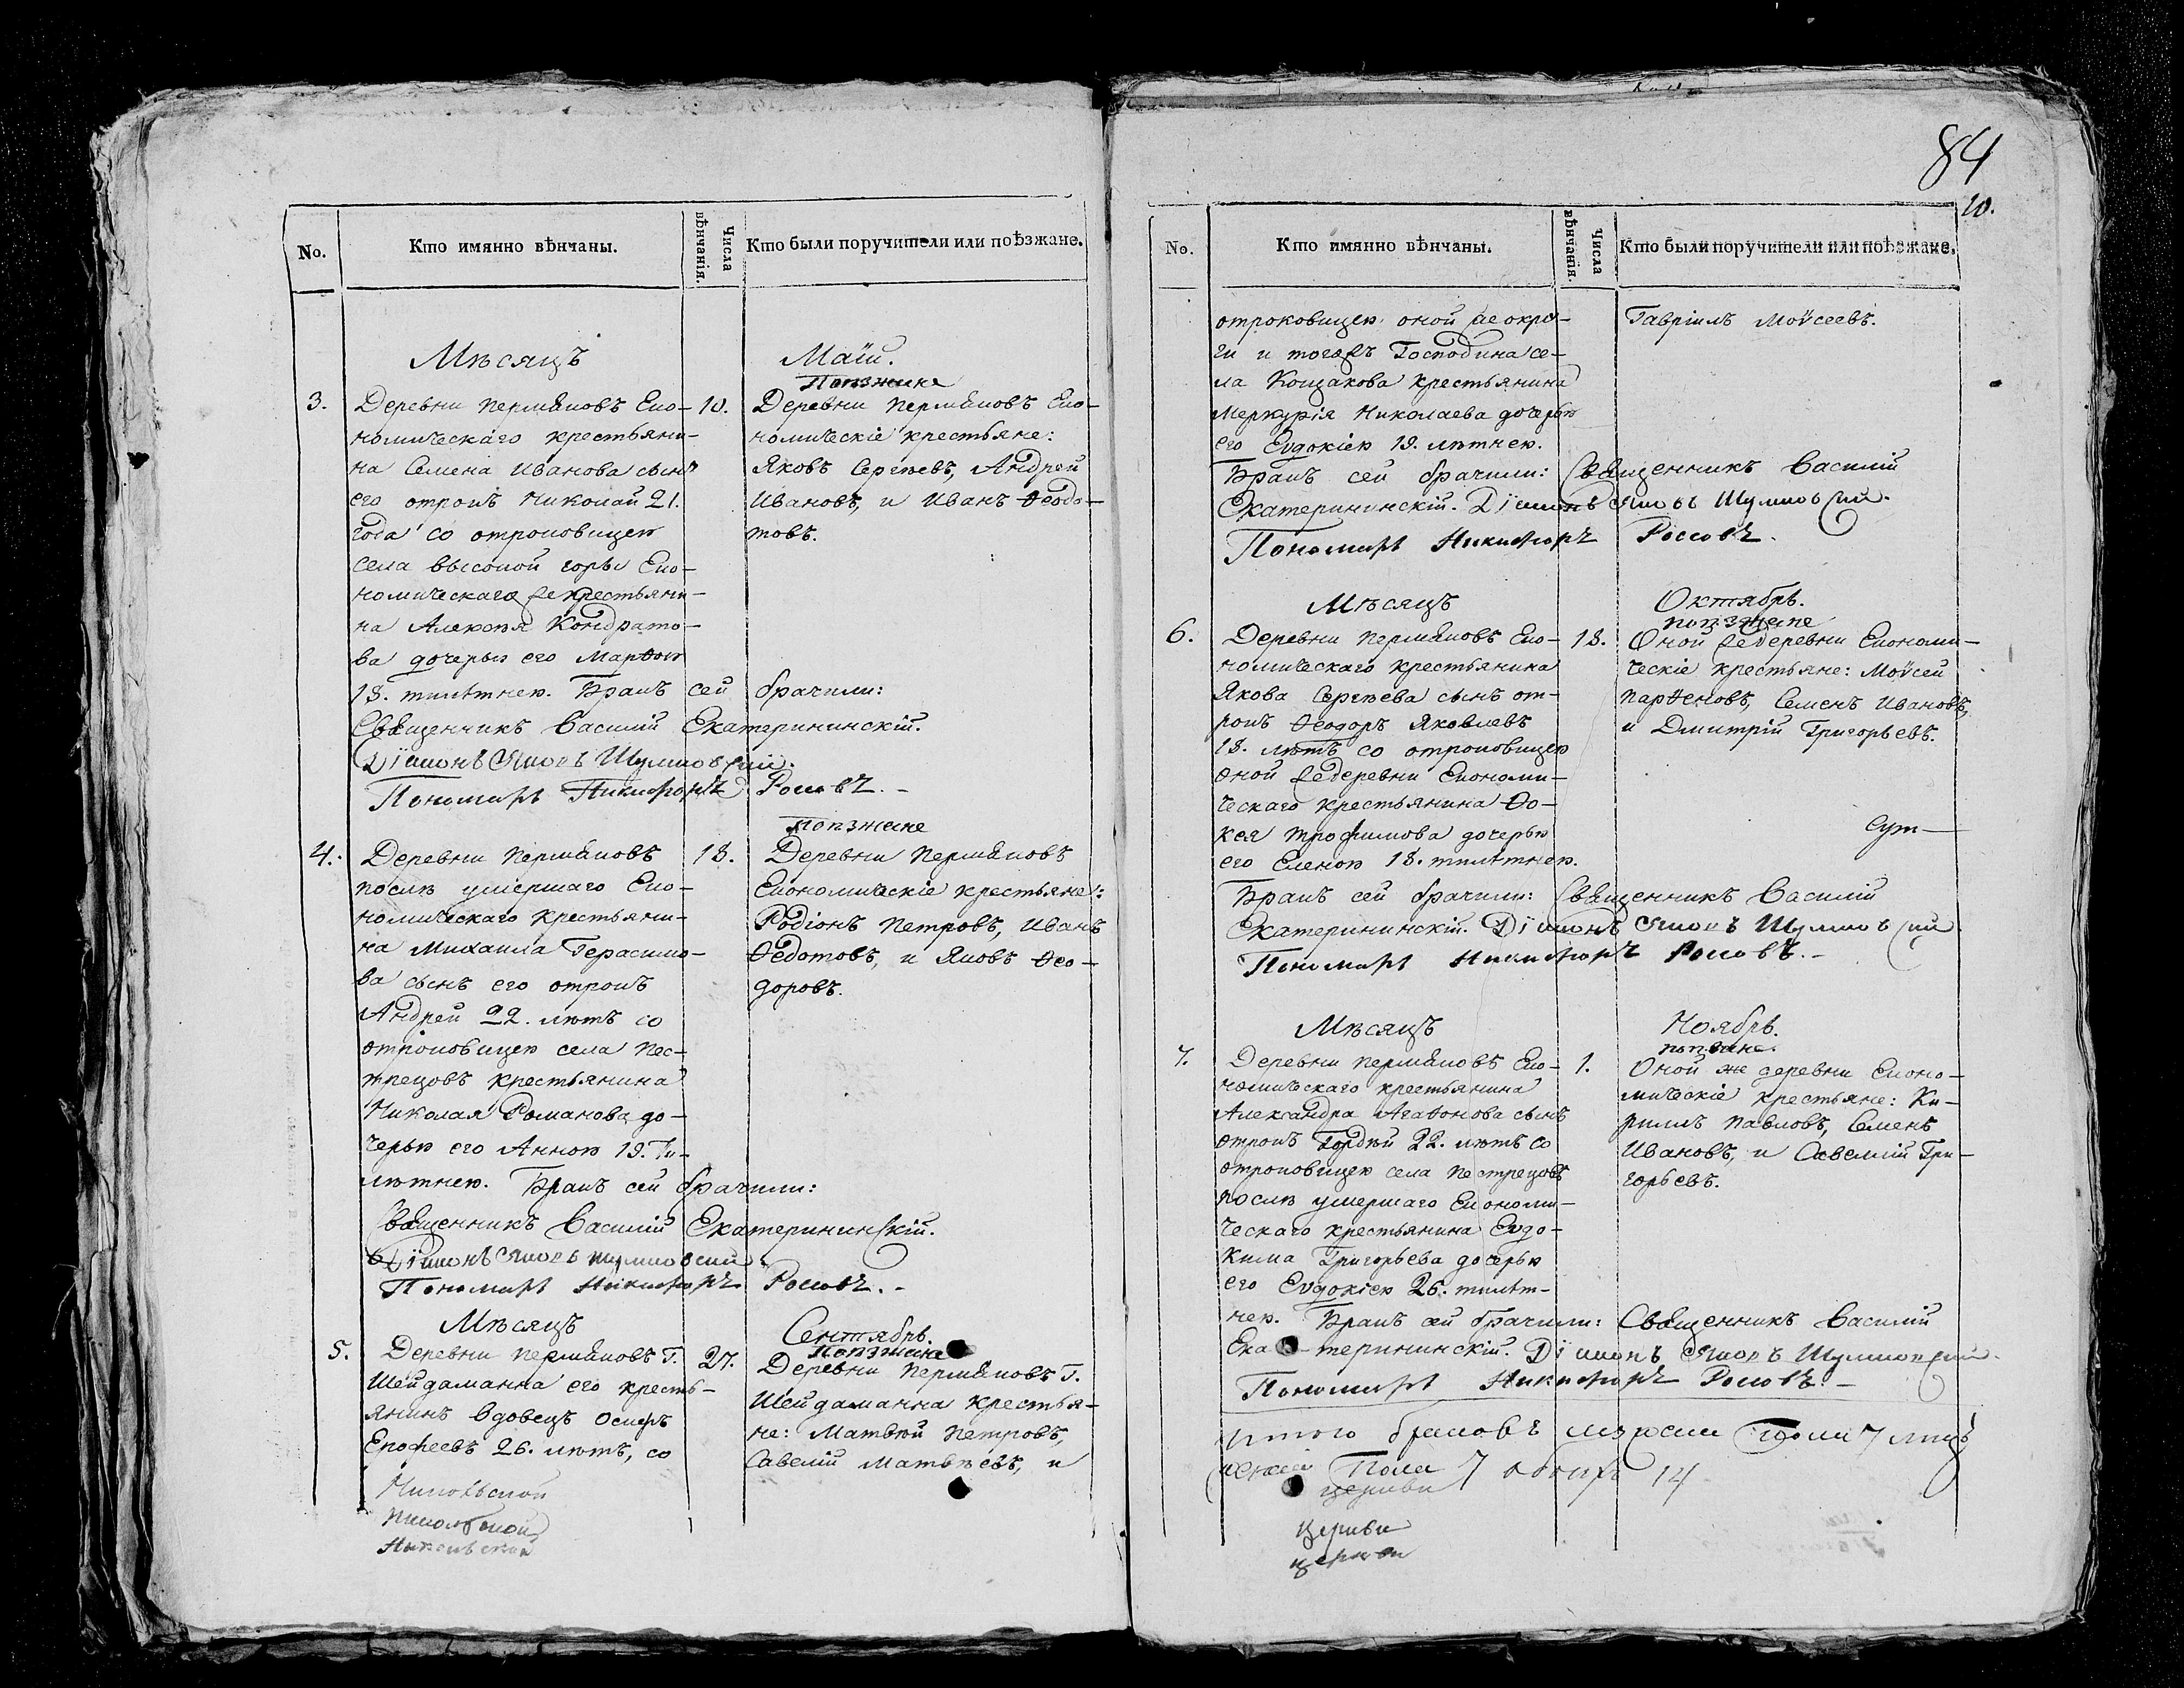 No.
Кто имянно вѣнчаны.
Числа вѣнчанія.
Кто были поручители или поѣзжане.
Мѣсяцъ
Маій.
Поѣзжане
3.
Деревни Пермяковъ Еко-
номическаго крестьяни-
на Семена Иванова сынъ
его отрокъ Николай 21.
года со отроковицею
села высокой горы Еко-
номическаго же крестьяни-
на Алексѣя Кондрато-
ва дочерью его Марѳою
18. тилѣтнею. Бракъ сей брачили:
Священникъ Василій Екатерининскій.
Діяконъ Яковъ Шумковскій.
Пономарь Никифоръ Россовъ.
10.
Деревни Пермяковъ Еко-
номическіе крестьяне:
Яковъ Сергѣевъ, Андрей
Ивановъ, и Иванъ Ѳедо-
товъ.
поѣзжане
4.
Деревни Пермяковъ
послѣ умершаго Еко-
номическаго крестьяни-
на Михаила Герасимо-
ва сынъ его отрокъ
Андрей 22. лѣтъ со
отроковицею села Пес-
трецовъ крестьянина
Николая Романова до-
черью его Анною 19. ти-
лѣтнею. Бракъ сей брачили:
Священникъ Василій Екатерининскій.
Діяконъ Яковъ Шумковскій
Пономарь Никифоръ Россовъ.
18.
Деревни Пермяковъ
Економическіе крестьяне:
Родіонъ Петровъ, Иванъ
Ѳедотовъ, и Яковъ Ѳео-
доровъ.
Мѣсяцъ
Сентябрь.
Поѣзжане
5.
Деревни Пермяковъ Г.
Шейдаманна его кресть-
янинъ вдовецъ Осипъ
Ерофеевъ 26. лѣтъ, со
27.
Деревни Пермяковъ Г.
Шейдаманна крестья-
не: Матвѣй Петровъ,
Савелій Матвѣевъ, и
Никольской
Никольской
Никольской
84
10.
No.
Кто имянно вѣнчаны.
Числа вѣнчанія.
Кто были поручители или поѣзжане.
отроковицею оной же окру-
ги и тогожъ Господина се-
ла Кощакова крестьянина
Меркурія Николаева дочерью
его Евдокіею 19. лѣтнею.
Бракъ сей брачили: Священникъ Василій
Екатерининскій. Діяконъ Яковъ Шумковскій.
Пономарь Никифоръ Россовъ.
Гавріилъ Моѵсеевъ.
Мѣсяцъ
Октябрь.
поѣзжане
6.
Деревни Пермяковъ Еко-
номическаго крестьянина
Якова Сергѣева сынъ от-
рокъ Ѳеодоръ Яковлевъ
18. лѣтъ со отроковицею
оной же деревни Економи-
ческаго крестьянина Ѳо-
кея Трофимова дочерью
его Еленою 18. тилѣтнею.
Бракъ сей брачили: Священникъ Василій
Екатерининскій. Діяконъ Яковъ Шумковскій
Пономарь Никифоръ Россовъ.
18.
Оной же деревни Економи-
ческіе крестьяне: Моѵсей
Парѳеновъ, Семенъ Ивановъ,
и Дмитрій Григорьевъ.
Мѣсяцъ
Ноябрь.
7.
Деревни Пермяковъ Еко-
номическаго крестьянина
Александра Агаѳонова сынъ
отрокъ Гордѣй 22. лѣтъ со
отроковицею села Пестрецовъ
послѣ умершаго Економи-
ческаго крестьянина Евдо-
кима Григорьева дочерью
его Евдокіею 26. тилѣт-
нею. Бракъ сей брачили: Священникъ Василій
Екатерининскій. Діяконъ Яковъ Шумковскій.
Пономарь Никифоръ Россовъ.
1.
Оной же деревни Еконо-
мическіе крестьяне: Ки-
риллъ Павловъ, Семенъ
Ивановъ, и Савелій Гри-
горьевъ.
Итого браковъ мужеска Пола 7
женска Пола 7 обоихъ 14
церкви
церкви
церкви